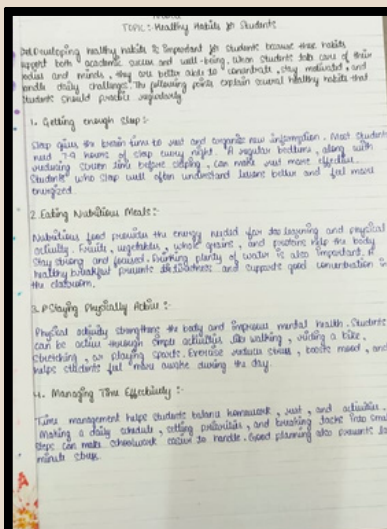 TOPIC:- Healthy Habits for Students
Developing healthy habits is important for students because these habits
support both academic success and well-being. When students take care of their
bodies and minds, they are better able to concentrate, stay motivated, and
handle daily challenges. The following points explain several healthy habits that
students should practice regularly
1. Getting enough sleep:-
Sleep gives the brain time to rest and organize new information. Most students
need 7-9 hours of sleep every night. A regular bedtime, along with
reducing screen time before sleeping, can make rest more effective.
Students who sleep well often understand lessons better and feel more
energized.
2. Eating Nutritious Meals:-
Nutritious food provides the energy needed for learning and physical
activity. Fruits, vegetables, whole grains, and proteins help the body
stay strong and focused. Drinking plenty of water is also important. A
healthy breakfast prevents and supports good concentration in
the classroom.
3. Staying Physically Active:-
Physical activity strengthens the body and improves mental health. Students
can be active through simple activities like walking, riding a bike,
stretching, or playing sports. Exercise reduces stress, boosts mood, and
helps students feel more awake during the day.
4. Managing Time Effectively:-
Time management helps students balance homework, rest, and activities.
Making a daily schedule, setting priorities, and breaking tasks into
steps can make schoolwork easier to handle. Good planning also prevents
minute stress.